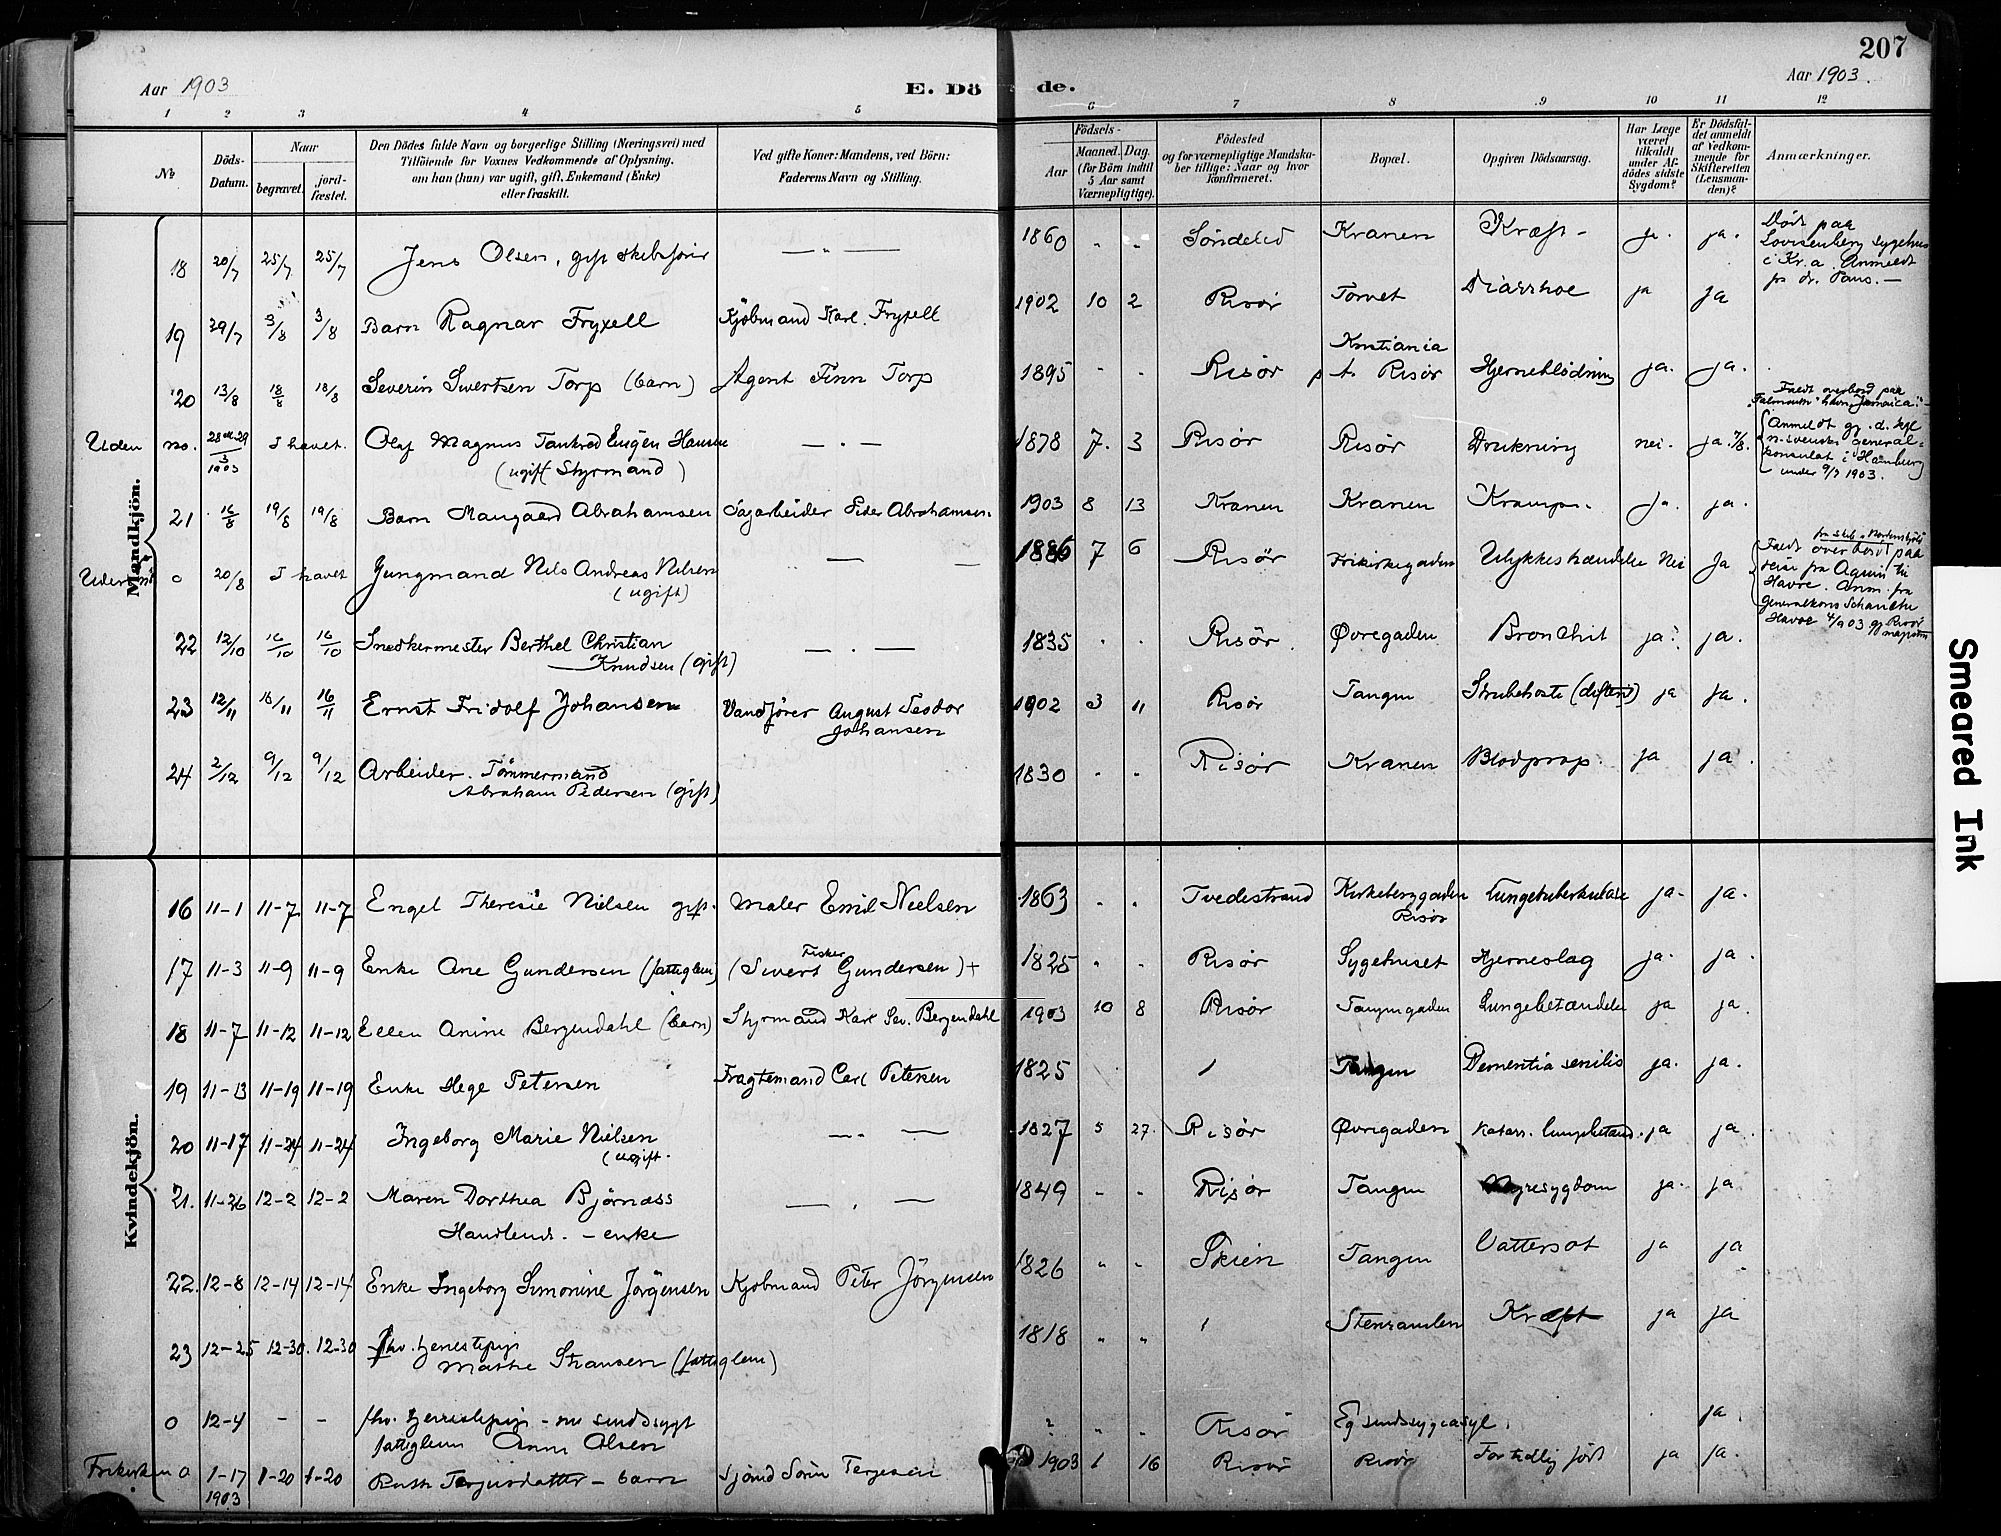 207
Aar 1903
E. Dö
de.
Aar 1903.
1 2 3 4 5 6 7 8 9 10 11 12
No
Döds-Datum.
Naar
begravet.
jord-fæstet.
Den Dödes fulde Navn og borgerlige Stilling (Næringsvei) med
Tilföiende for Voxnes Vedkommende af Oplysning,
om han (hun) var ugift, gift, Enkemand (Enke)
eller fraskilt.
Ved gifte Koner: Mandens, ved Börn:
Faderens Navn og Stilling.
Födsels-
Aar
Maaned.
Dag.
(for Börn indtil
5 Aar samt
Værnepligtige).
Födested
og for værnepligtige Mandska-
ber tillige: Naar og hvor
konfirmeret.
Bopæl.
Opgiven Dödsaarsag.
Har Læge
været
tilkaldt
under Af-
dödes sidste
Sygdom?
Er Dödsfal-
det anmeldt
af Vedkom-
mende for
Skifteretten
(Lensman-
den)?
Anmærkninger.
Mandkjön.
18 20/7 25/7 25/7 Jens Olsen, gift skibsfører — " — 1860 " " Søndeled Kranen Kræft - ja. ja.
Døde paa
Lovisenberg sygehus
i Kr.a. Anmeldt
fr dr. Paus. —
19 29/7 3/8 3/8 Barn Ragnar Fryxell Kjøbmand Karl Fryxell 1902 10 2 Risør Torvet Diarrhoe ja ja
20 13/8 18/8 18/8 Severin Sivertsen Torp (barn) Agent Finn Torp 1895 " " Risør Kristiania
p t. Risør Hjerneblødning ja. ja.
Uden no. 28 29/3 1903 I havet. Olaf Magnus Tankred Eugen Hansen
(ugift Styrmand) — " — 1878 7. 3 Risør Risør Drukning nei. ja. 7/8.
Faldt overbord paa
"Falmouth" havn, Jamaica.
Anmeldt gj. d. kgl
n-svenske general-
konsulat i Hamburg
under 9/7 1903.
21 16/8 19/8 19/8 Barn Maugaard Abrahamsen Sagarbeider Peder Abrahamsen. 1903 8 13 Kranen Kranen Krampe. Ja. ja.
Uden no 0 20/8 I havet Jungmand Nils Andreas Nilsen
(ugift) — — 1886 7 6 Risør Frikirkegaden Ulykkeshændelse Nei Ja
Faldt overbord paa
reise fra Aquin til
Havre. Anm. fra
Generalkons
Havre 4/9 03 gj. Risør
22 12/10 16/10 16/10 Snedkermester Berthel Christian
Knudsen (gift) — . — 1835 . . Risør. Øvregaden Bronchit ja. ja.
23 12/11 16/11 16/11 Ernst Fridolf Johansen Vandfører August Teodor
Johansen 1902 3 11 Risør Tangen Strubehoste (difterit) ja ja.
24 2/12 9/12 9/12 Arbeider. Tømmermand
Abraham Pedersen (gift) 1830 " " Risør Kranen Blodprop. ja ja.
Kvindekjön.
16 11-1 11-7 11-7 Engel Theresie Nielsen gift. Maler Emil Nielsen 1863 . . Tvedestrand Kirkebergaden
Risør Lungetuberkulose ja- ja.
17 11-3 11-9 11-9 Enke Ane Gundersen (fattiglem) (Fisker
Sivert Gundersen) + 1825 " . Risør Sygehuset Hjerneslag ja. ja.
18 11-7 11-12 11-12 Ellen Anine Bergendahl (barn) Styrmand Karl Sev. Bergendahl 1903 10 8 Risør Tangengaden Lungebetændelse ja ja.
19 11-13 11-19 11-19 Enke Hege Petersen Fragtemand Carl Petersen 1825 / Tangen Dementia senilis ja. ja.
20 11-17 11-24 11-24 Ingeborg Marie Nielsen
(ugift. — " — 1827 5 27. Risør Øvregaden Katarr. lungebetænd. ja ja.
21. 11-26 12-2 12-2 Maren Dorthea Bjørnæss
Handlend. - enke — . — 1849 " " Risør Tangen Nyresygdom ja. ja
22. 12-8 12-14 12-14 Enke Ingeborg Simonine Jörgensen Kjøbmand Peter Jörgensen 1826 " " Skien Tangen Vattersot ja ja
23 12-25 12-30. 12-30 fhv. tjenestepige
Marthe Stransen (fattiglem) 1818 " " / Stensanden Kræft ja ja
0 12-4 - - fhv. tjenestepige - nu sindssygt
fattiglem Anne Olsen " " Risør Eg sindssygeasyl. ja.
Frikirken 0 1-17
1903 1-20 1-20 Ruth Terjesdatter - barn Sjømd Sørin Terjesen 1903 1 16 Risør Risør For tidlig født ja ja.
Smeared Ink